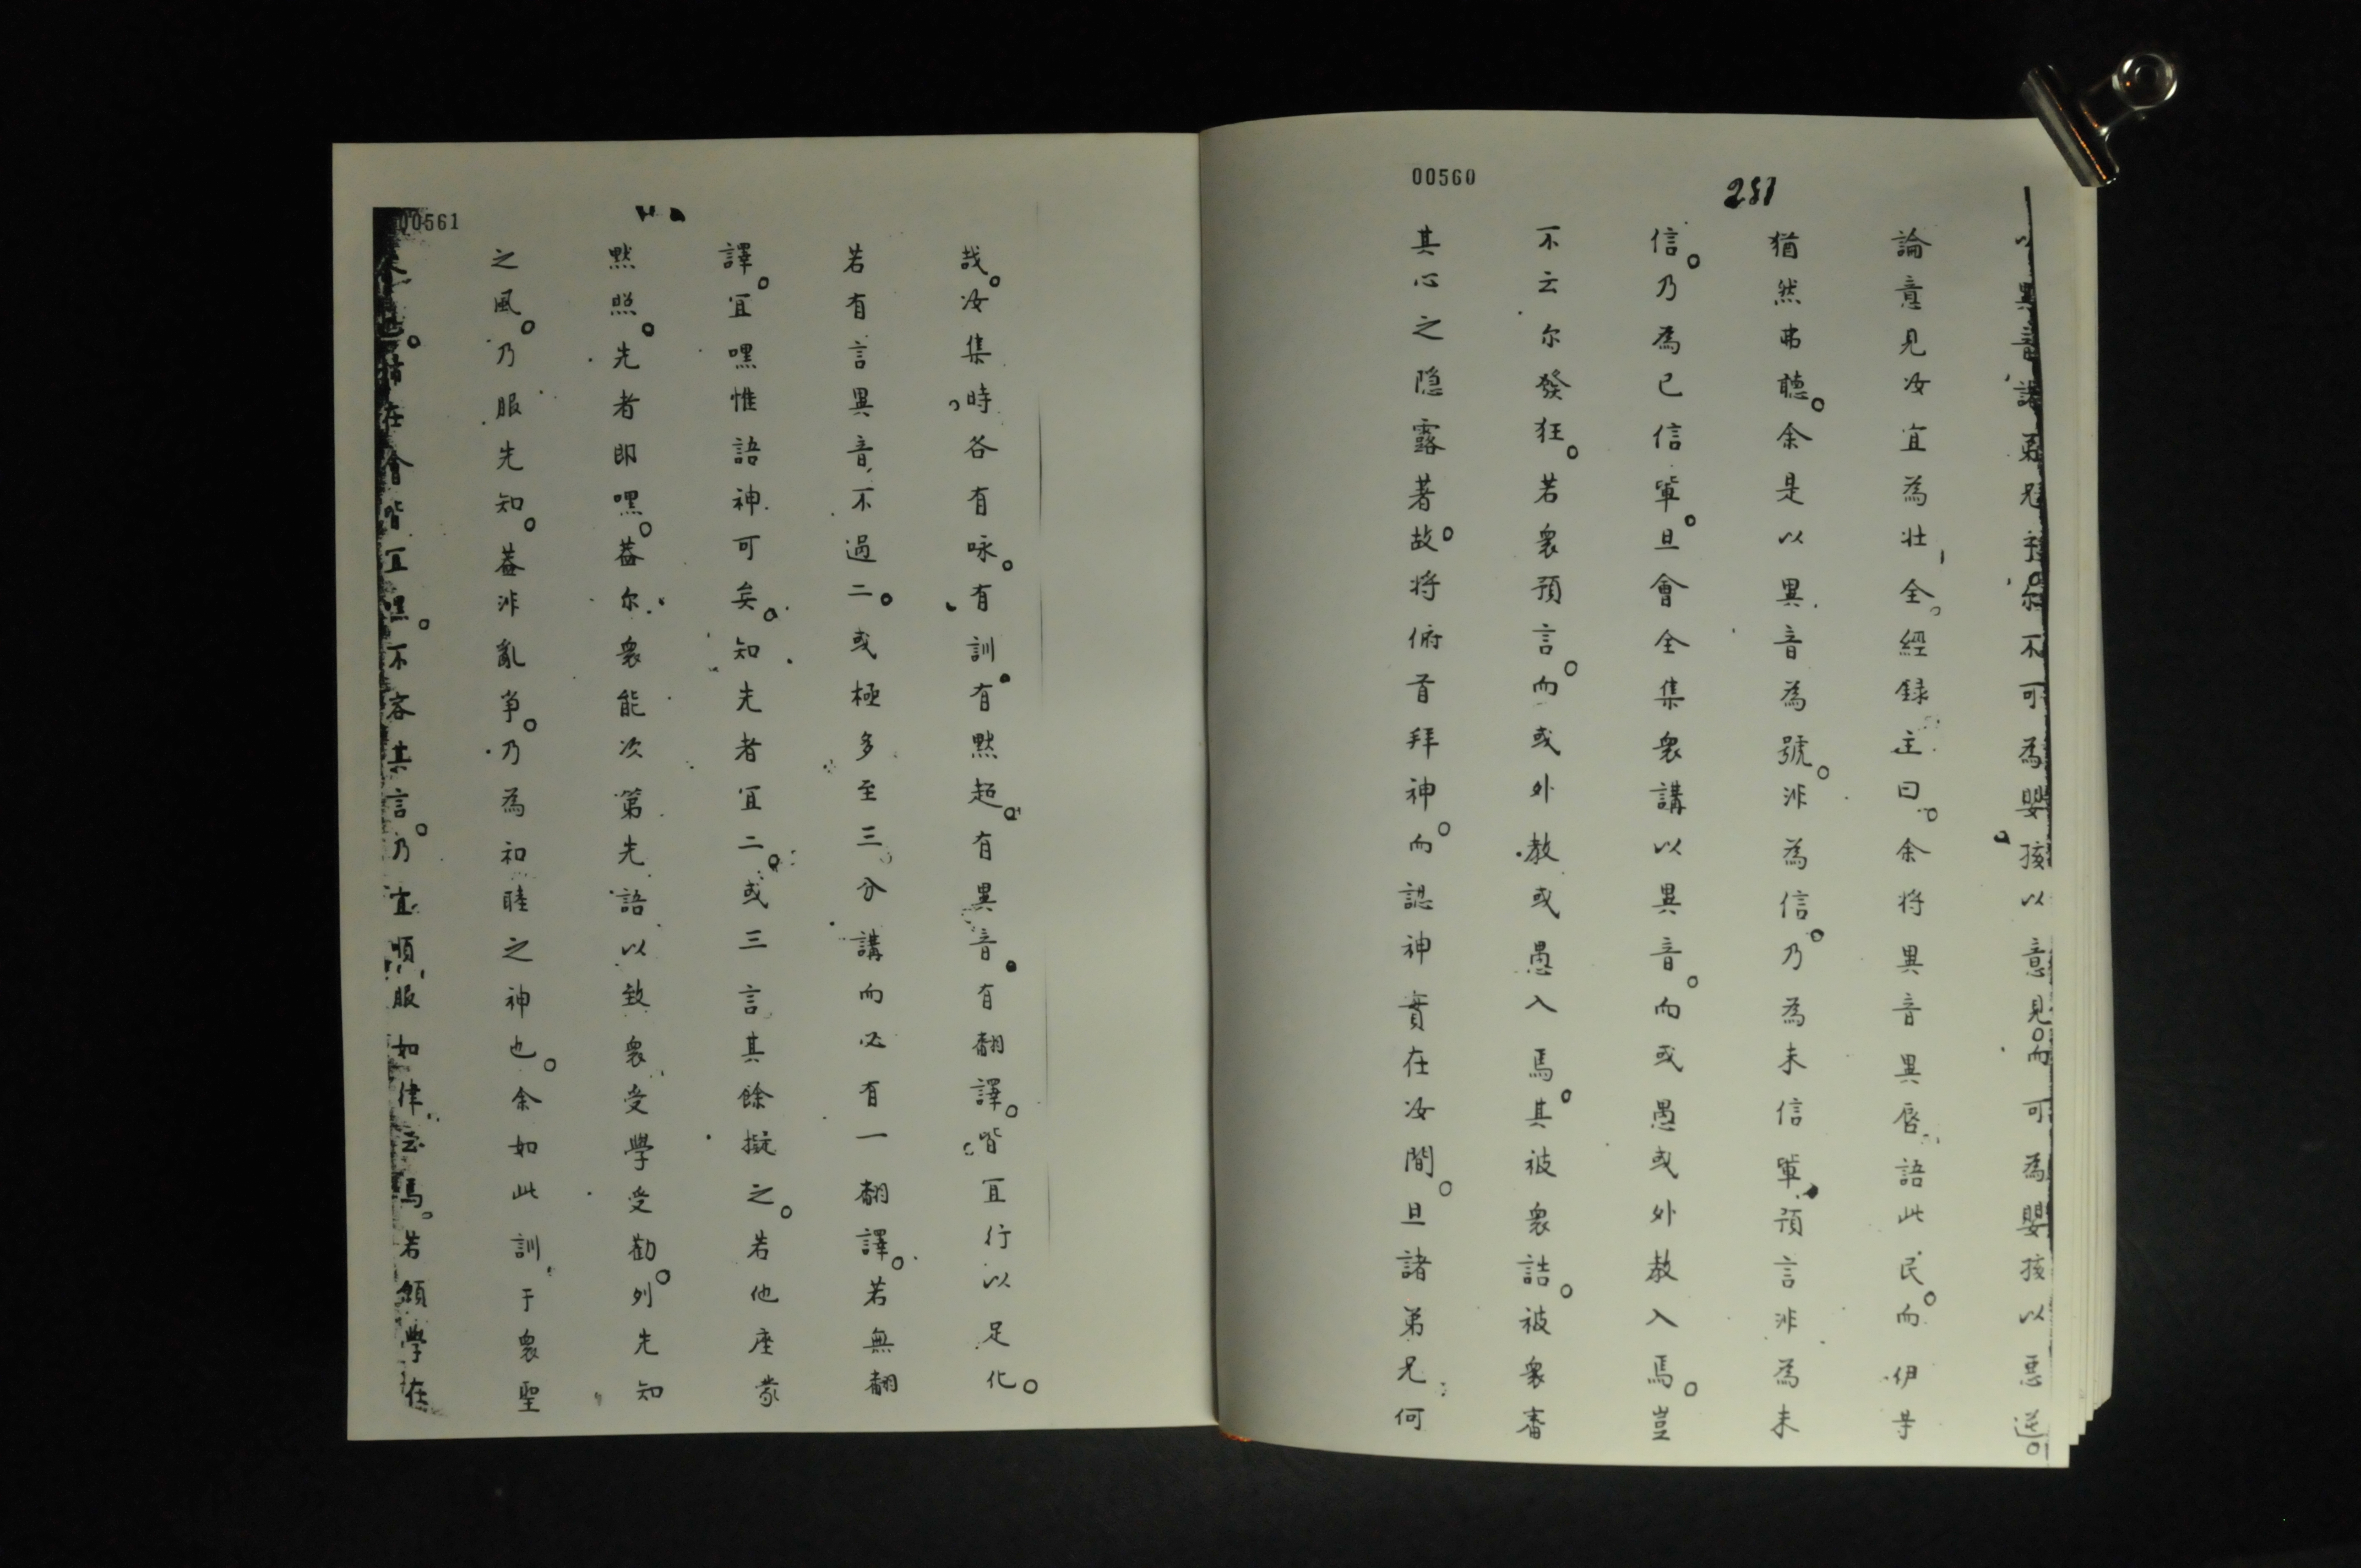 00560
281
以異音誨弟兄乎。尔不可為嬰孩以意見。而可為嬰孩以惡逆。
論意見汝宜為壮全。經録主曰。余将異音異唇語此民。而伊等
猶然弗聽。余是以異音為號。非為信。乃為未信輩。預言非為未
信。乃為已信輩。旦會全集衆講以異音。而或愚或外教入焉。豈
不云尔發狂。若衆預言。而或外教或愚入焉。其被衆詰。被衆審
其心之隐露著故。将俯首拜神。而認神實在汝間。旦諸弟兄何
00561
哉。汝集時各有咏。有訓。有黙超。有異音。有翻譯。皆宜行以足化。
若有言異音不過二。或極多至三分講而必有一翻譯。若無翻
譯。宜嘿惟語神可矣。知先者宜二。或三言其餘擬之。若他座蒙
黙照。先者即嘿。葢尔衆能次第先語以致衆受學受勸。列先知
之風。乃服先知。葢非亂争。乃為和睦之神也。余如此訓于衆聖
在會皆宜。不容其言。乃宜順服如律云焉。若願學在